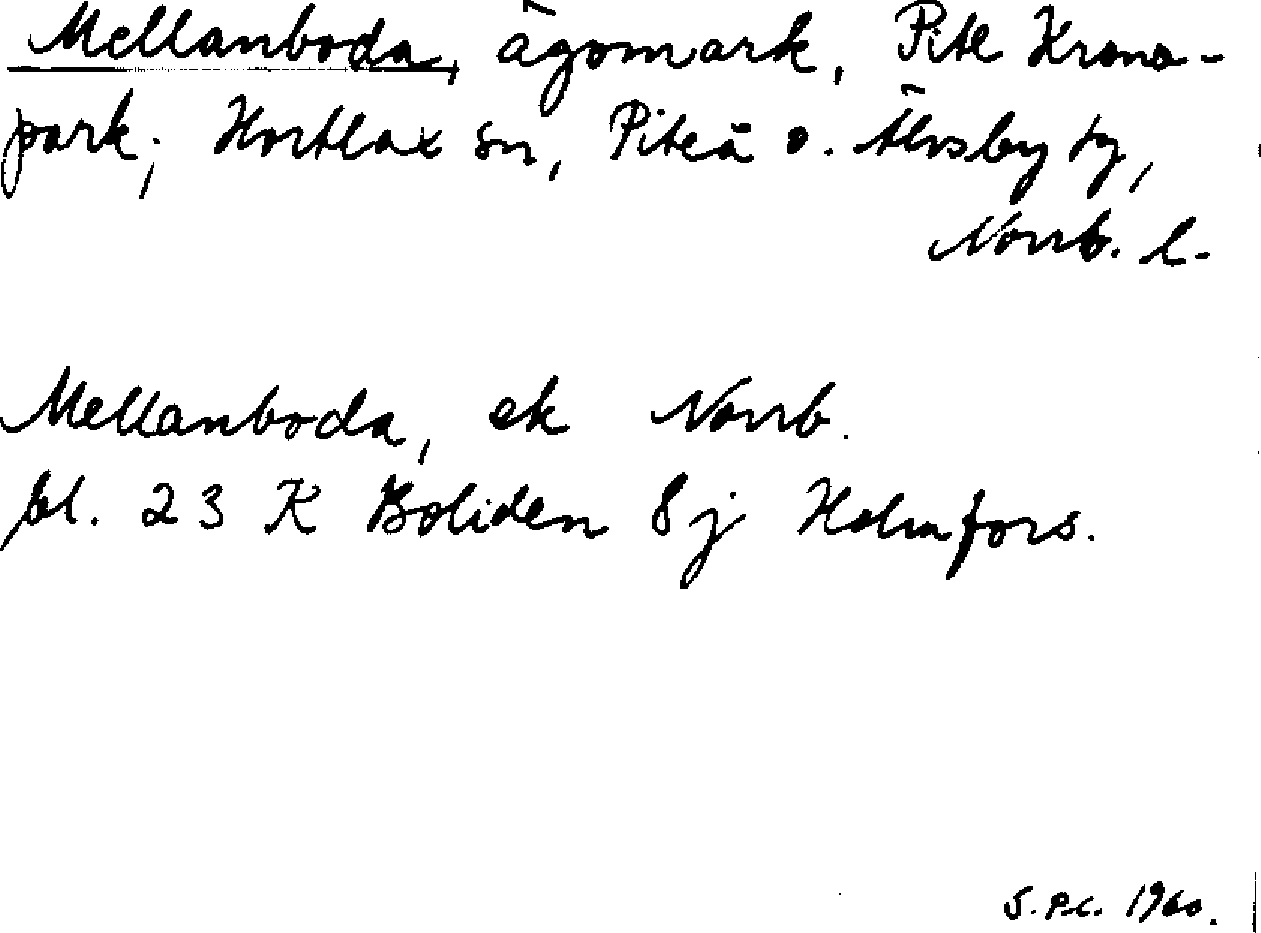 Mellanboda, ägomark, Pite Krono-
park; Hortlax sn, Piteå o. Älvsby tg,
Norrb. l.
Mellanboda, ek Norrb.
bl. 23 K Boliden 8j Holmfors.
1960.